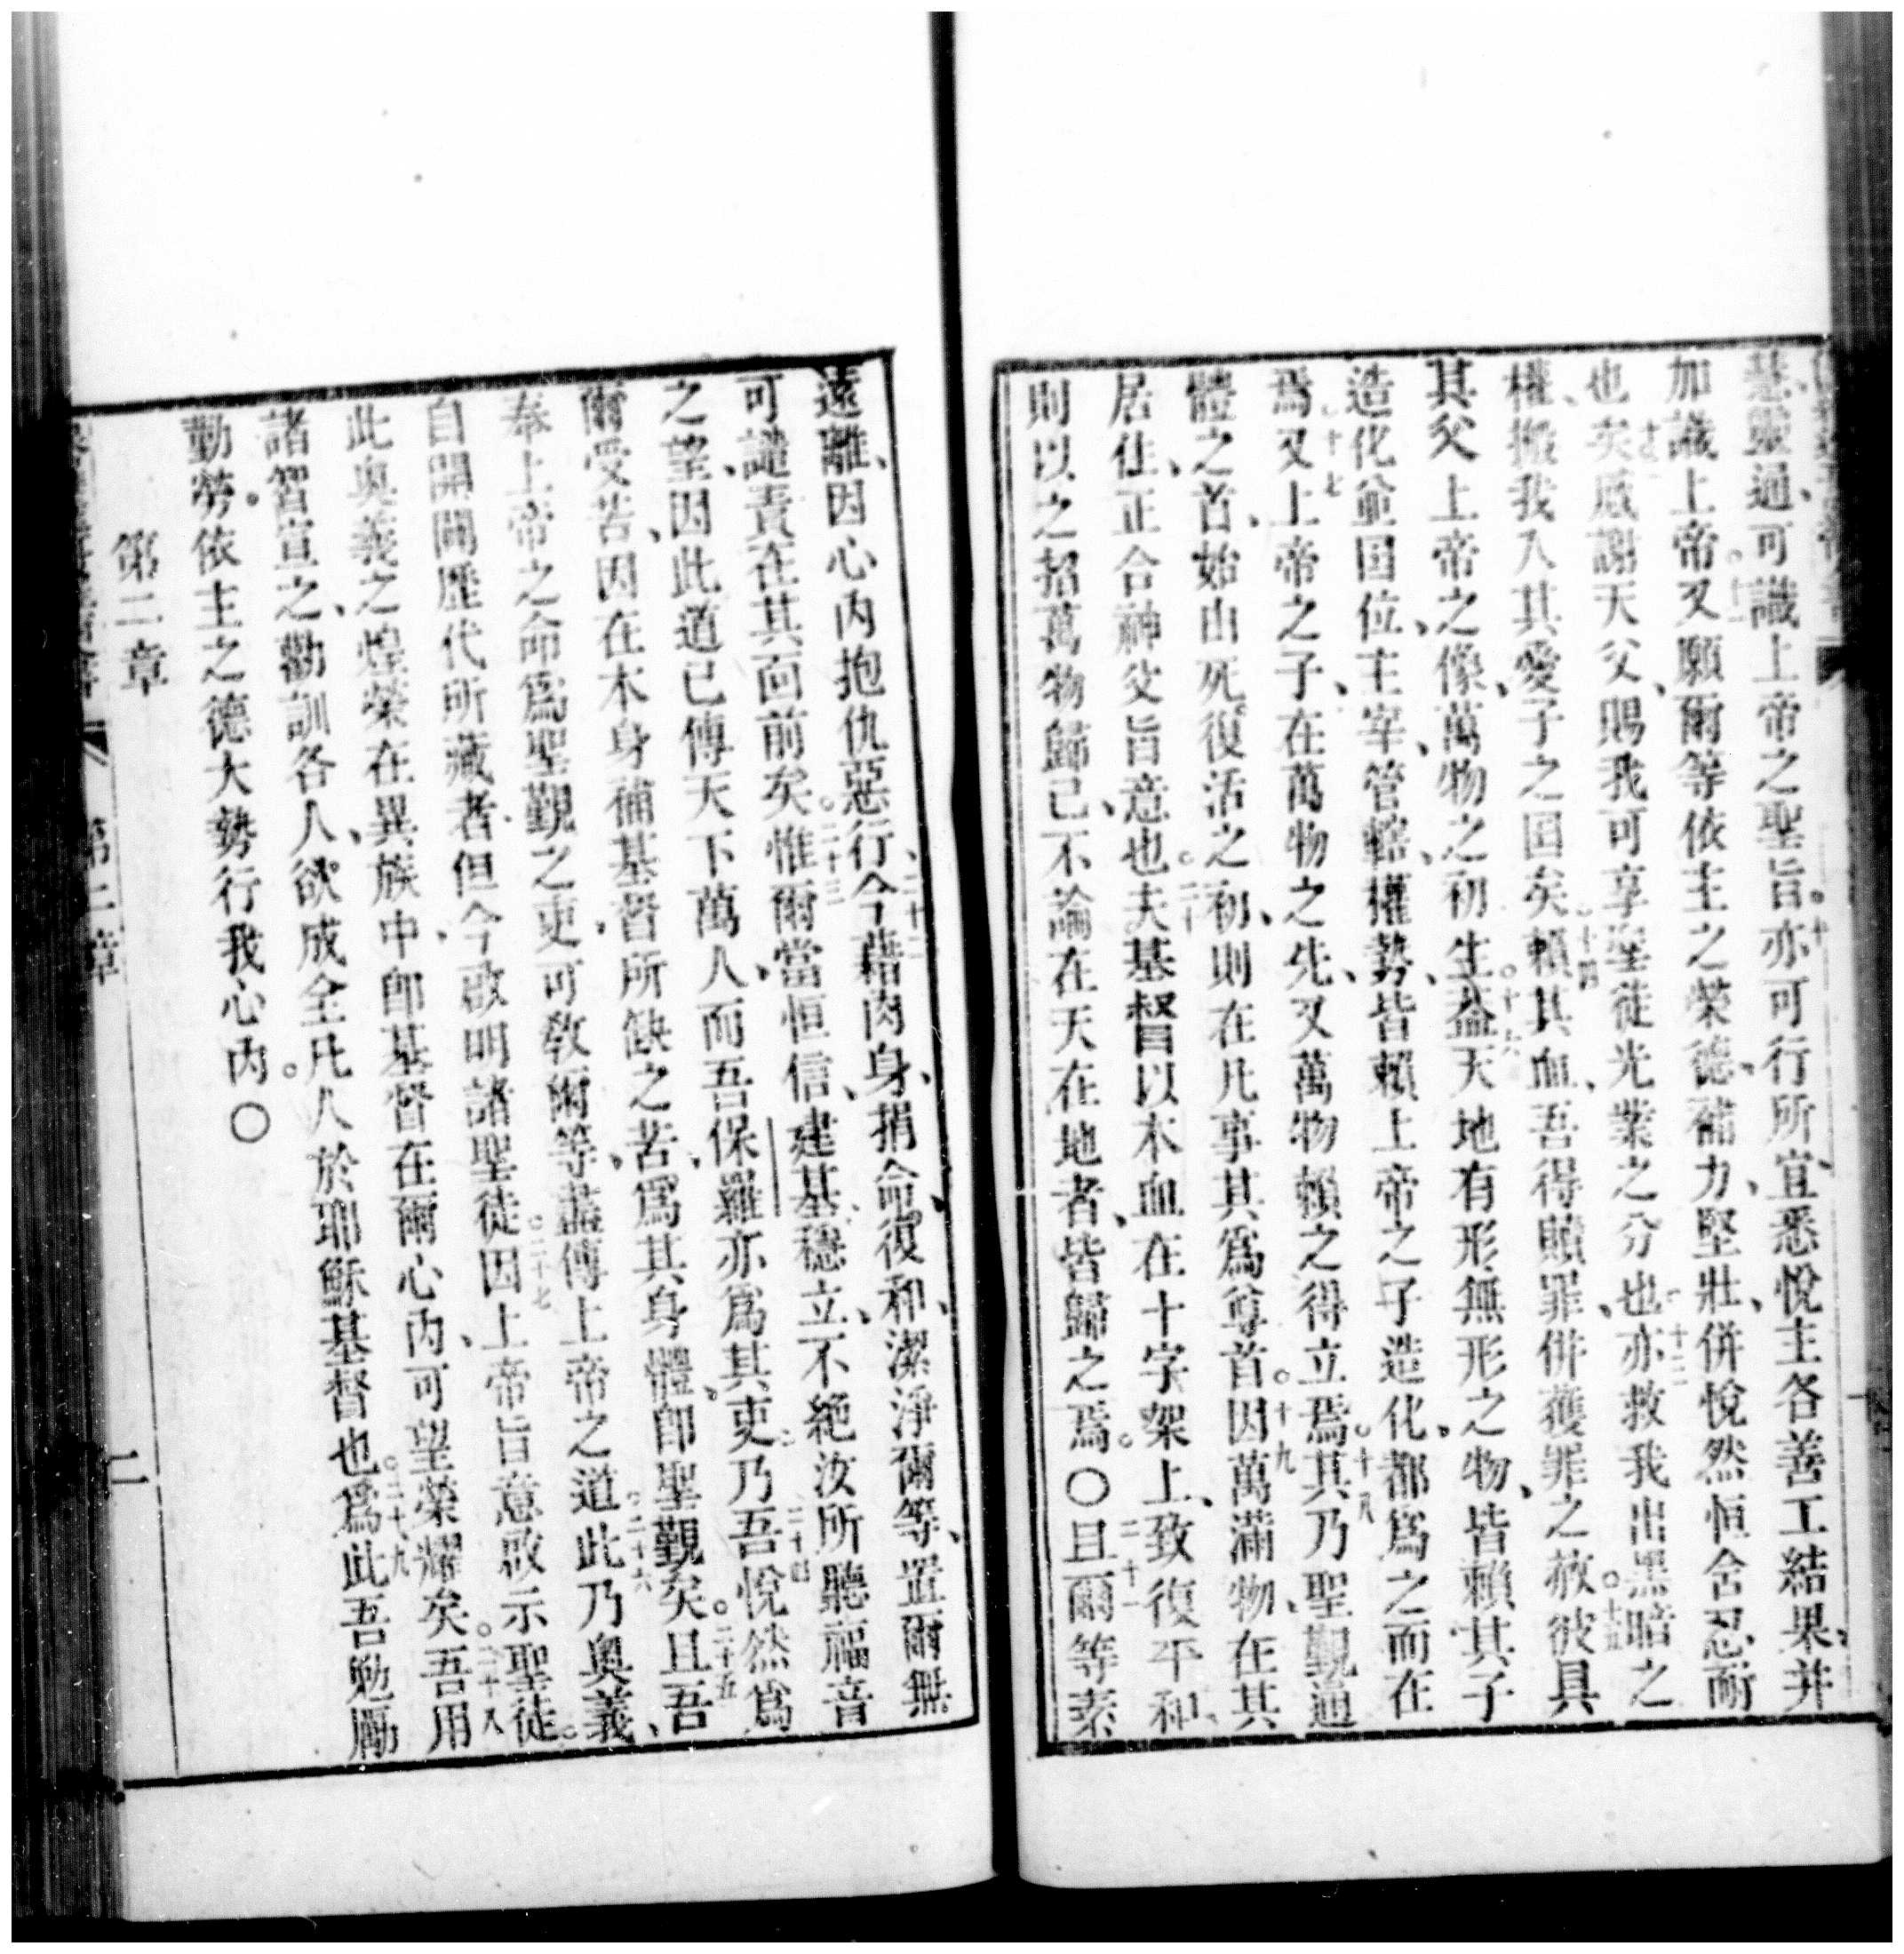 慧靈通、可識上帝之聖旨。十亦可行所宜、悉悅主各善工結果、并
加識上帝。十一又願爾等依主之榮德、補力、堅壯、併悅然恒含忍耐
也矣。十二感謝天父、賜我可享聖徒光業之分也。十三亦救我出黑暗之
權、搬我入其愛子之国矣。十四賴其血、吾得贖罪、併獲罪之赦。十五彼具
其父上帝之像、萬物之初生。十六蓋天地有形無形之物、皆賴其子
造化並国位、主宰、管轄、權勢、皆賴上帝之子造化、都爲之而在
焉。十七又上帝之子、在萬物之先、又萬物賴之得立焉。十八其乃聖覲通
體之首、始由死復活之初、則在凡事其爲尊首。十九因萬滿物、在其
居住、正合神父旨意也。二十夫基督以本血在十字架上、致復平和、
則以之招萬物歸己、不論在天在地者、皆歸之焉。○二十一且爾等素
遠離、因心內抱仇惡行、二十二今藉肉身、捐命、復和、潔淨爾等、置爾無
可譴責在其面前矣。二十三惟爾當恒信、建基穩立、不絕汝所聽福音
之望、因此道已傳天下萬人、而吾保羅亦爲其吏。二十四乃吾悅然爲
爾受苦、因在本身補基督所缺之苦、爲其身體、即聖覲矣。二十五且吾
奉上帝之命爲聖覲之吏、可教爾等、盡傳上帝之道。二十六此乃奧義、
自開闢歷代所藏者、但今啟明諸聖徒。二十七因上帝旨意啟示聖徒。
此奧義之煌榮在異族中、即基督在爾心內、可望榮耀矣。二十八吾用
諸智宣之、勸訓各人、欲成全凡人於耶穌基督也。二十九爲此吾勉勵
勤勞。依主之德大勢行我心內。○
第二章
第二章
二